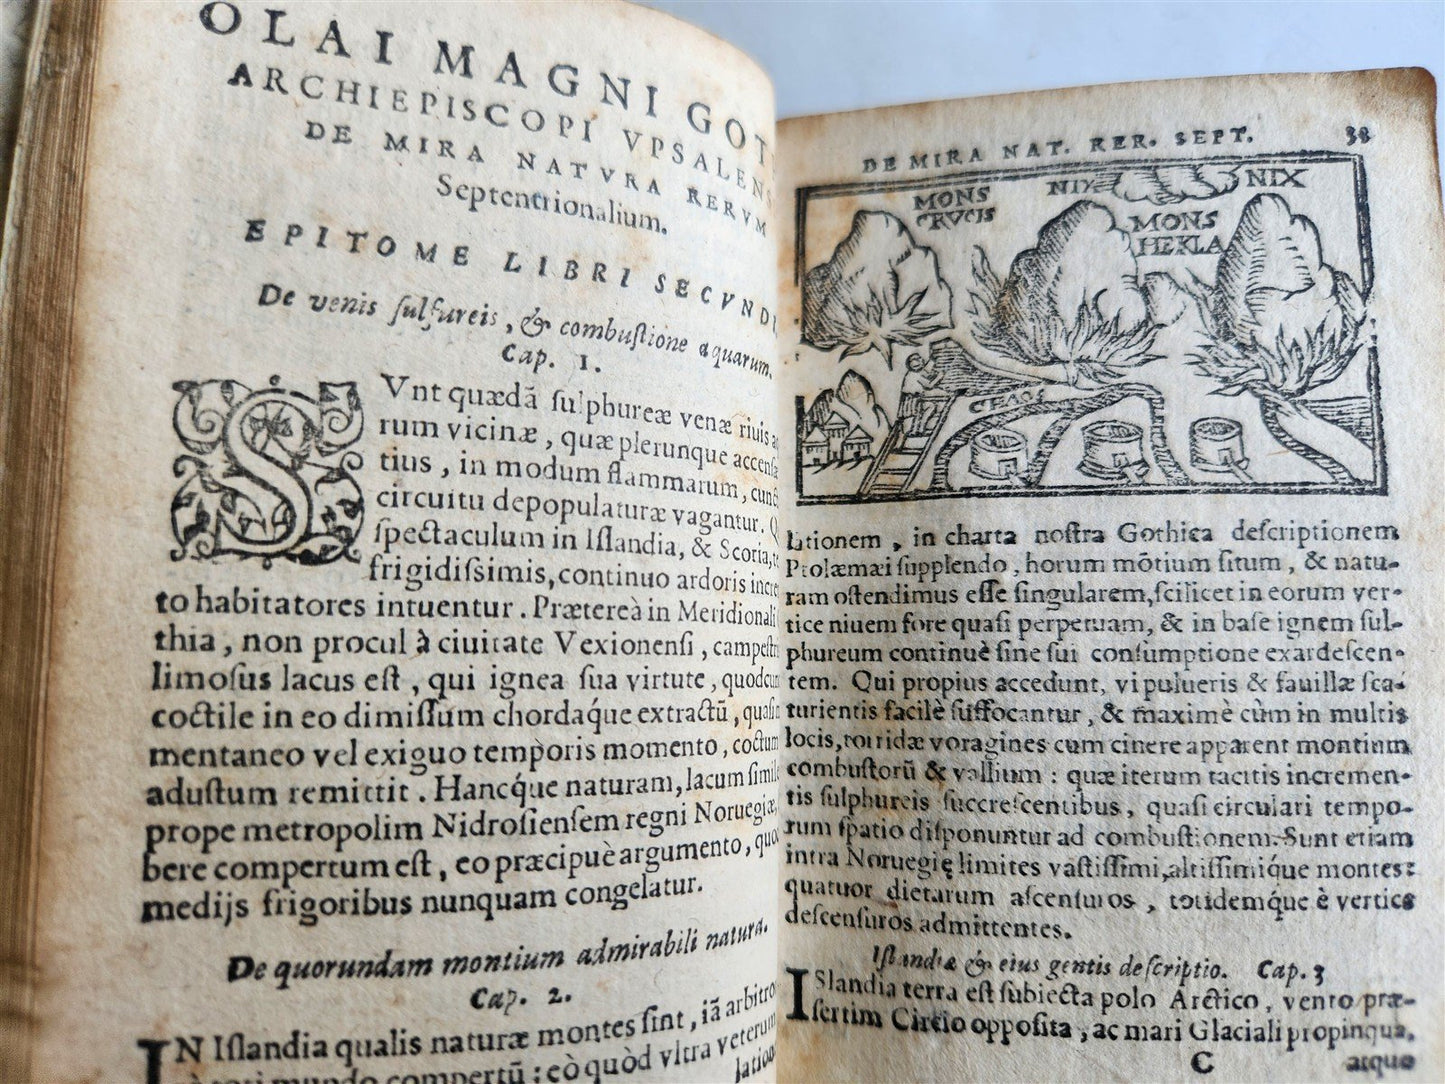 OLAI MAGNI GOT
ARCHIEPISCOPI VPSALENS
DE MIRA NATVRA RERVM
Septentrionalium.
EPITOME LIBRI SECVNDI
De venis ſulfureis, & combuſtione aquarum.
Cap. 1.
SVnt quædã ſulphureæ venæ riuis a
rum vicinæ, quæ plerunque accenſa
tius, in modum flammarum, cunct
circuitu depopulaturæ vagantur. Q
ſpectaculum in Iſlandia, & Scotia, te
frigidiſsimis, continuo ardoris incre
to habitatores intuentur. Prætereà in Meridionali
thia, non procul à ciuitate Vexionenſi, campeſtri
limoſus lacus eſt, qui ignea ſua virtute, quodcun
coctile in eo dimiſſum chordaq́ue extractũ, quaſi
mentaneo vel exiguo temporis momento, coctum
aduſtum remittit. Hancq́ue naturam, lacum ſimile
prope metropolim Nidroſienſem regni Noruegiæ,
bere compertum eſt, eo præcipuè argumento, quod
medijs frigoribus nunquam congelatur.
De quorundam montium admirabili natura.
Cap. 2.
IN Iſlandia qualis naturæ montes ſint, iã arbitro
compertũ: eò quòd vltra veterum
latione
DE MIRA NAT. RER. SEPT. 33
MONS CRVCIS
NIX
MONS HEKLA
NIX
CHAOS
lationem, in charta noſtra Gothica deſcriptionem
Ptolæmæi ſupplendo, horum mõtium ſitum, & natu-
ram oſtendimus eſſe ſingularem, ſcilicet in eorum ver-
tice niuem fore quaſi perpetuam, & in baſe ignem ſul-
phureum continuè ſine ſui conſumptione exardeſcen-
tem. Qui propius accedunt, vi pulueris & fauillæ ſca-
turientis facilè ſuffocantur, & maximè cùm in multis
locis, torridæ voragines cum cinere apparent montium
combuſtorũ & vallium: quæ iterum tacitis incremen-
tis ſulphureis ſuccreſcentibus, quaſi circulari tempo-
rum ſpatio diſponuntur ad combuſtionem. Sunt etiam
intra Noruegię limites vaſtiſſimi, altiſſimiq́ue montes:
quatuor dietarum aſcenſuros, totidemq́ue è vertice
deſcenſuros admittentes.
Iſlandiæ & eius gentis deſcriptio. Cap. 3
ISlandia terra eſt ſubiecta polo Arctico, vento præ-
ſertim Circio oppoſita, ac mari Glaciali propinqua,
C atque